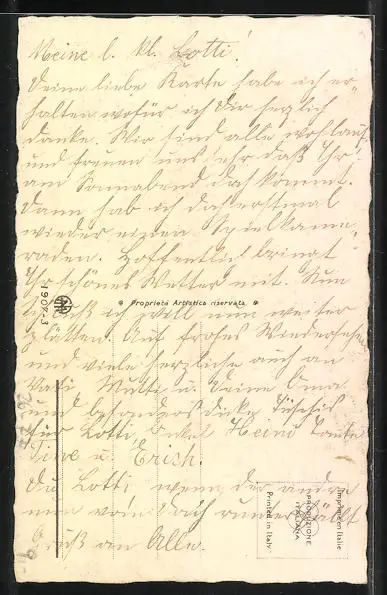 Meine l. kl. Lotti!
Deine liebe Karte habe ich er-
halten wofür ich Dir herzlich
danke. Wir sind alle wohlauf
und freuen uns sehr daß Ihr
am Sonnabend doch kommt.
Dann hab ich das erstmal
wieder einen Spielkame-
raden. Hoffentlich bringt
Ihr schönes Wetter mit. Nun
ich will nun weiter
plätten. Auf frohes Wiedersehen
und viele herzliche auch an
Vati Mutti u. Deine Oma
und besonders dicke Küschis
für Lotti, Onkel Heino Tante
Tine u. Erich.
Du Lotti, wenn der andre
man
Gruß an Alle.
Proprietà Artistica riservata
1907-3
Imprimé en Italie
PRODUZIONE
ITALIANA
Printed in Italy